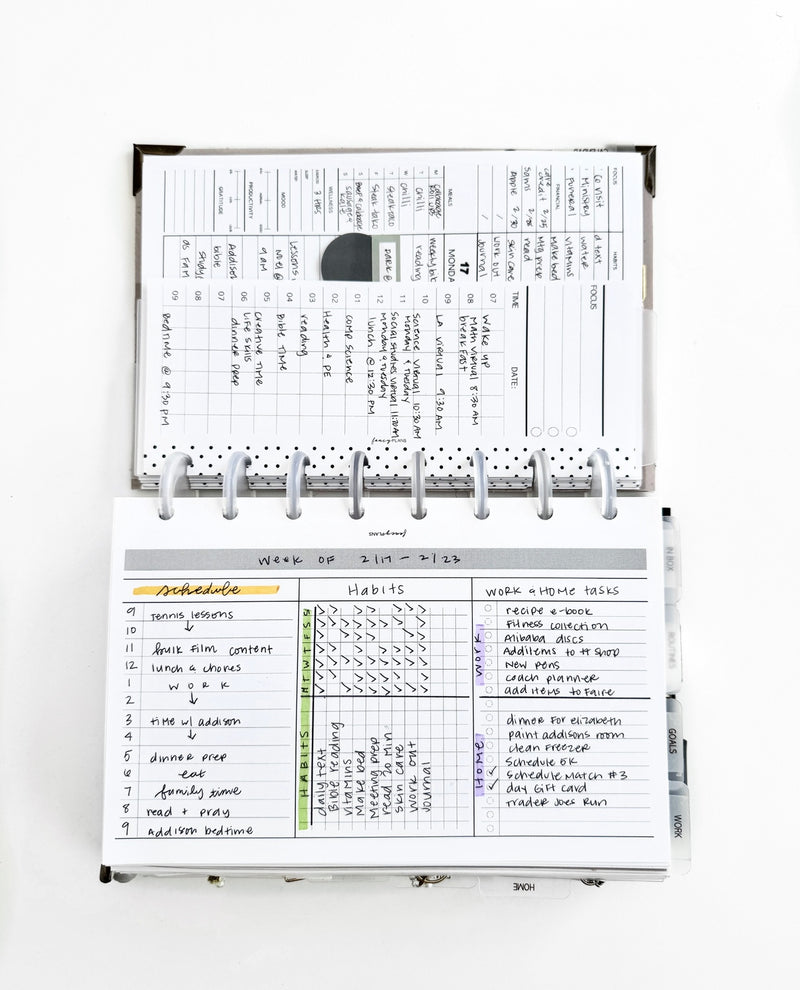 FOCUS
Co visit
Ministry
Funeral
FINANCIAL
care credit 2/25
Sams 2/28
Apple 2/30
MEALS
M cabbage roll ups
T chilli
W chilli
T steak taco
F Steak tako
S Beef & cabbage
S sausage & kale
WELLNESS
3 HRS
MOOD
PRODUCTIVITY
GRATITUDE
HABITS
d. text
water
vitamins
Make bed
Mtg prep
read
skin care
work out
journal
17
MONDA
weekly bib
reading
DARK &
Lessons,
Novel @
9 AM
Addison
bible
study
as FAM
FOCUS
TIME
DATE:
07 Wake up
08 Math virtual 8:30 AM
breakfast
09 LA virtual 9:30 AM
10 Science virtual 10:30 AM
Monday & Tuesday
11 Social studies virtual 11:30 AM
Monday & Tuesday
12 lunch @ 12:30 PM
01 Comp Science
02 Health & PE
03 reading
04 Bible Time
05 Creative Time
06 Life skills
07 dinner prep
08
09 Bedtime @ 9:30 PM
fancy PLANS
fancy PLANS
Week OF 2/17 - 2/23
schedule
9 Tennis lessons
10 ↓
11 bulk film content
12 lunch & chores
1 WORK
2 ↓
3 time w/ addison
4 ↓
5 dinner prep
6 eat
7 family time
8 read + pray
9 Addison bedtime
Habits
M T W T F S S
HABITS
daily text
Bible reading
vitamins
Make bed
Meeting prep
read 20 min
skin care
work out
journal
WORK & HOME TASKS
WORK
recipe e-book
Fitness collection
Alibaba discs
Add items to tt shop
New pens
coach planner
add items to Faire
HOME
dinner for elizabeth
paint addisons room
clean Freezer
Schedule OK
Schedule Match #3
day Gift card
Trader Joes Run
IN BOX
ROUTINES
GOALS
WORK
HOME